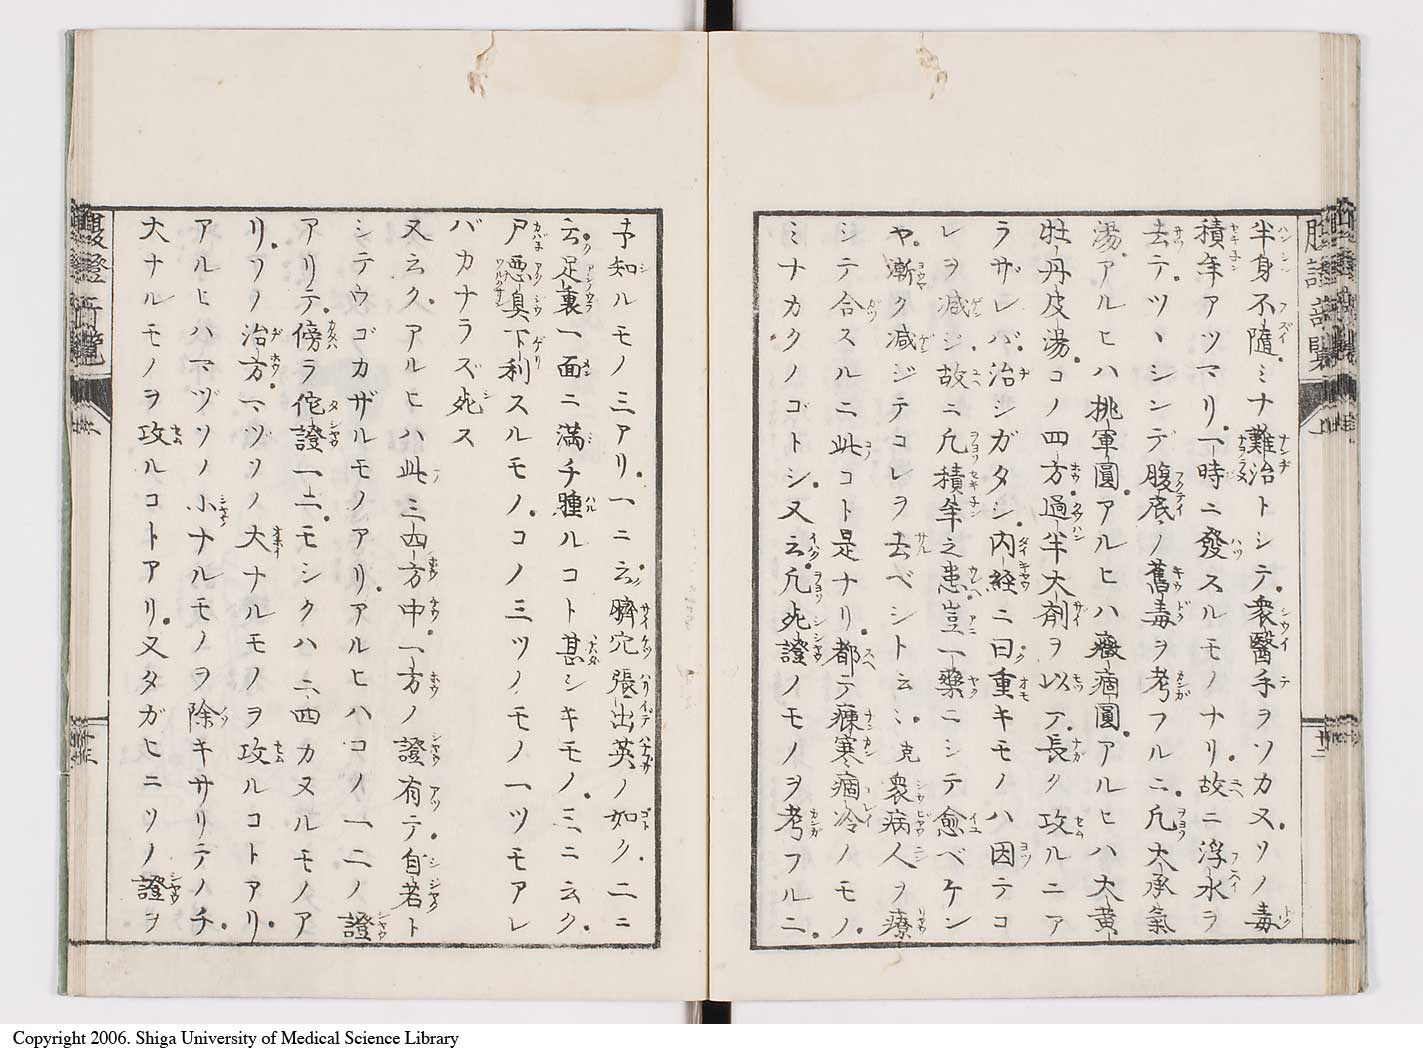 半身不隨。ミナ難治トシテ。衆醫手ヲソカヌ。ソノ毒
積年アツマリ。一時ニ發スルモノナリ。故ニ浮水ヲ
去テ。ツヽシンデ腹底ノ舊毒ヲ考フルニ。凢大承氣
湯。アルヒハ桃軍圓。アルヒハ癥痼圓。アルヒハ大黄
牡丹皮湯。コノ四方。過半大剤ヲ以テ。長ク攻ルニア
ラザレバ。治シガタシ。内経ニ曰ク。重キモノハ因テコ
レヲ減ジ。故ニ凢積年之患ヘ。豈一藥ニシテ愈ベケン
ヤ。漸ク減ジテコレヲ去ベシト云ニ。克衆病人ヲ療
シテ合スルニ。此コト是ナリ。都テ㾁寒痼冷ノモノ。
ミナカクノゴトシ。又云凢死證ノモノヲ考フルニ。
予知ルモノ三アリ。一ニ云ク。臍穴張出英ノ如ク。二ニ
云ク。足裏一面ニ滿チ腫ルコト甚シキモノ。三ニ云ク。
尸惡臭下利スルモノ。コノ三ツノモノ一ツモアレ
バカナラズ死ス
又云ク。アルヒハ此三四方中。一方ノ證有テ。自若ト
シテウゴカザルモノアリ。アルヒハコノ一二ノ證
アリテ。傍ラ佗證一二。モシクハ三四カヌルモノア
リ。ソノ治方。マヅソノ大ナルモノヲ攻ルコトアリ。
アルヒハマヅソノ小ナルモノヲ除キサリテノチ。
大ナルモノヲ攻ルコトアリ。又タガヒニソノ證ヲ
Copyright 2006. Shiga University of Medical Science Library